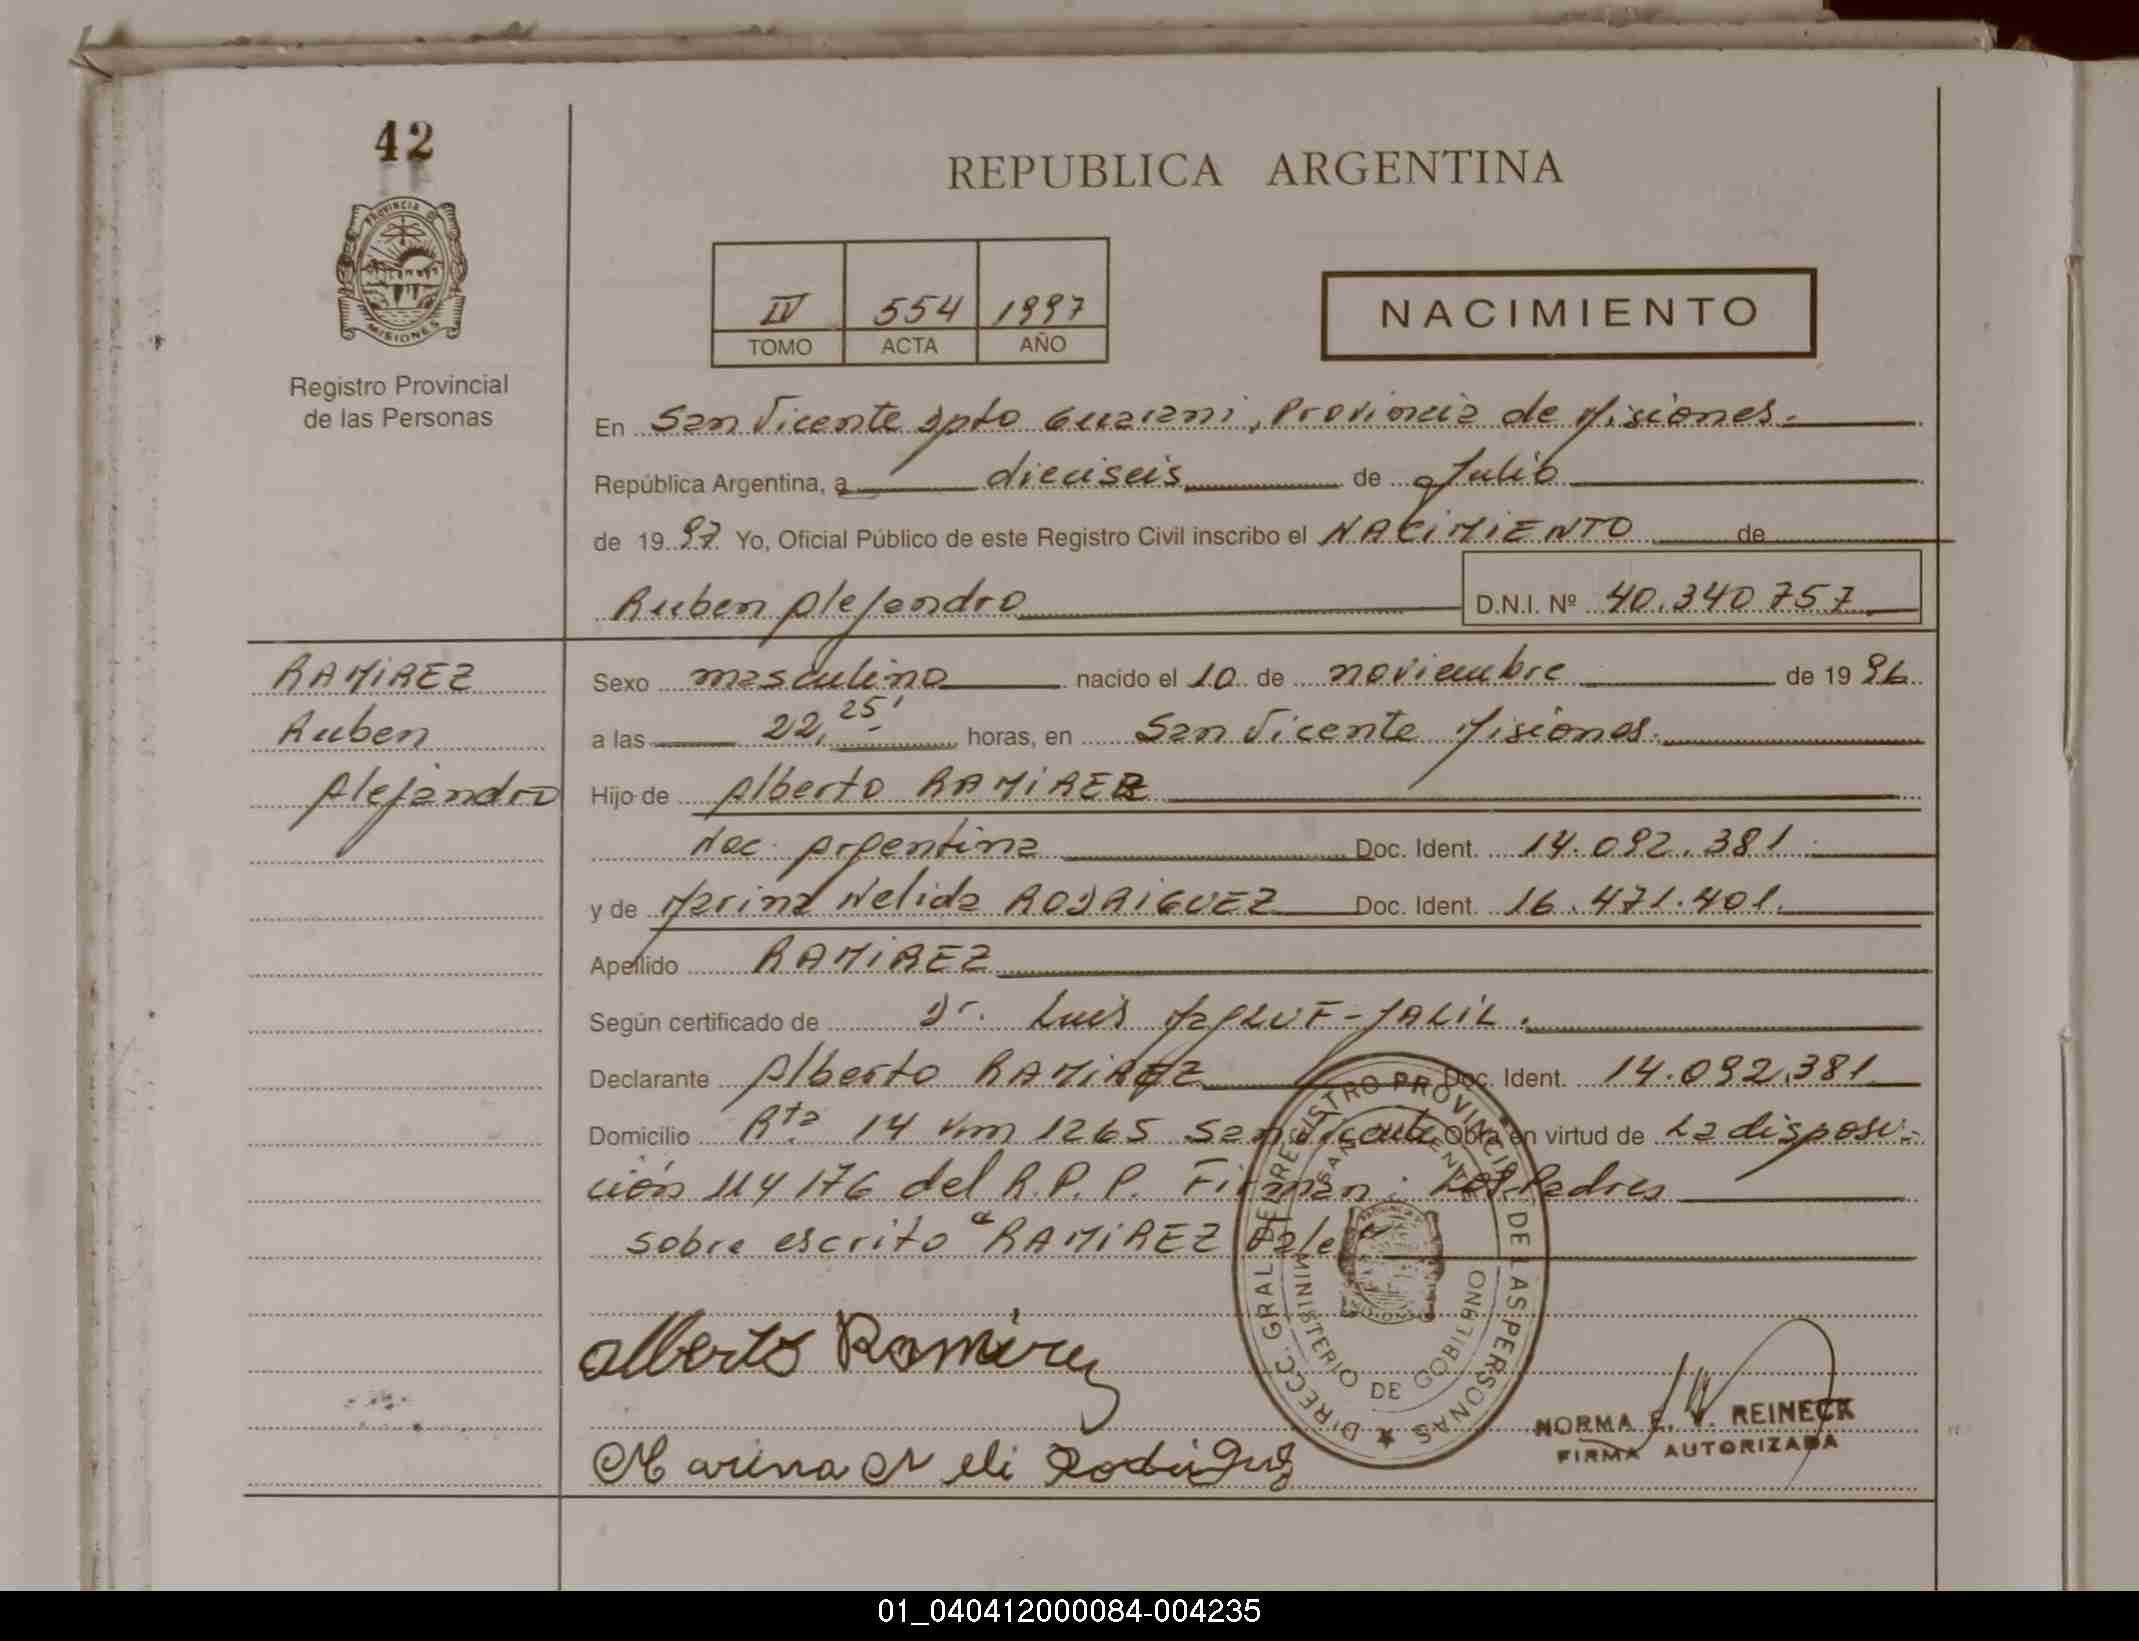 42
PROVINCIA DE
MISIONES
Registro Provincial
de las Personas
REPUBLICA ARGENTINA
IV 554 1997
TOMO ACTA AÑO
NACIMIENTO
En San Vicente Dpto Guarani, Provincia de Misiones.
República Argentina, a dieciseis de Julio
de 19 97 Yo, Oficial Público de este Registro Civil inscribo el NACIMIENTO de
Ruben Alejandro D.N.I. Nº 40.340.757
RAMIREZ
Ruben
Alejandro
Sexo masculino nacido el 10 de noviembre de 19 96
a las 22,25' horas, en San Vicente Misiones.
Hijo de Alberto RAMIREZ
Nac. Argentina Doc. Ident. 14.092.381
y de Marina Nelida RODRIGUEZ Doc. Ident. 16.471.401.
Apellido RAMIREZ
Según certificado de Dr. Luis JALIL.
Declarante Alberto RAMIREZ Doc. Ident. 14.092.381
Domicilio Rta 14 Km 1265 San Vicente Obra en virtud de La disposi-
ción 114/76 del R.P.P. Firman: Los Padres
sobre escrito "RAMIREZ Vale"
DIRECC. GRAL. DE REGISTRO PROVINCIAL DE LAS PERSONAS
SAN VICENTE
MINISTERIO DE GOBIERNO
Alberto Ramirez
Marina Neli Rodriguez
NORMA E. V. REINECK
FIRMA AUTORIZADA
01_040412000084-004235